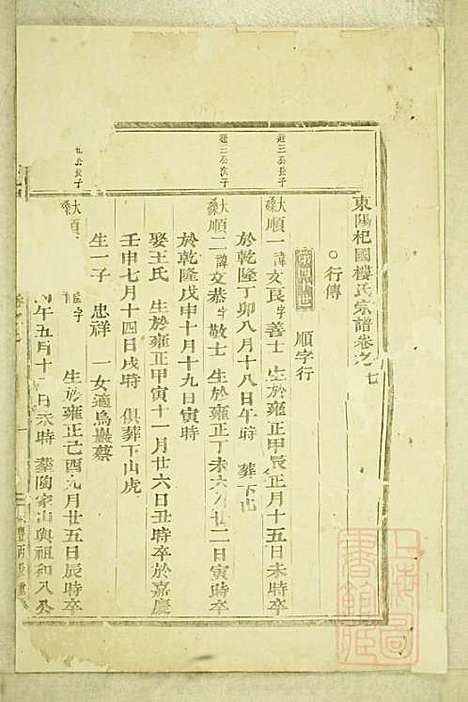 東陽杞國樓氏宗譜卷之七
○行傳
順字行
廷三公長子
大桑順一 諱文良字善士 生於雍正甲辰正月十五日未時卒
於乾隆丁卯八月十八日午時 葬下山
廷三公次子
大桑順二 諱文恭字敬士 生於雍正丁未六月廿二日寅時卒
於乾隆戊申十月十九日寅時
娶王氏 生於雍正甲寅十一月廿六日丑時卒於嘉慶
壬申七月十四日戌時 俱葬下山虎
生一子 忠祥 一女適烏巖蔡
九公長子
大桑順 字 生於雍正己酉九月廿五日辰時卒
午五月十 日未時 葬陶家山與祖和八公
上海圖書館藏